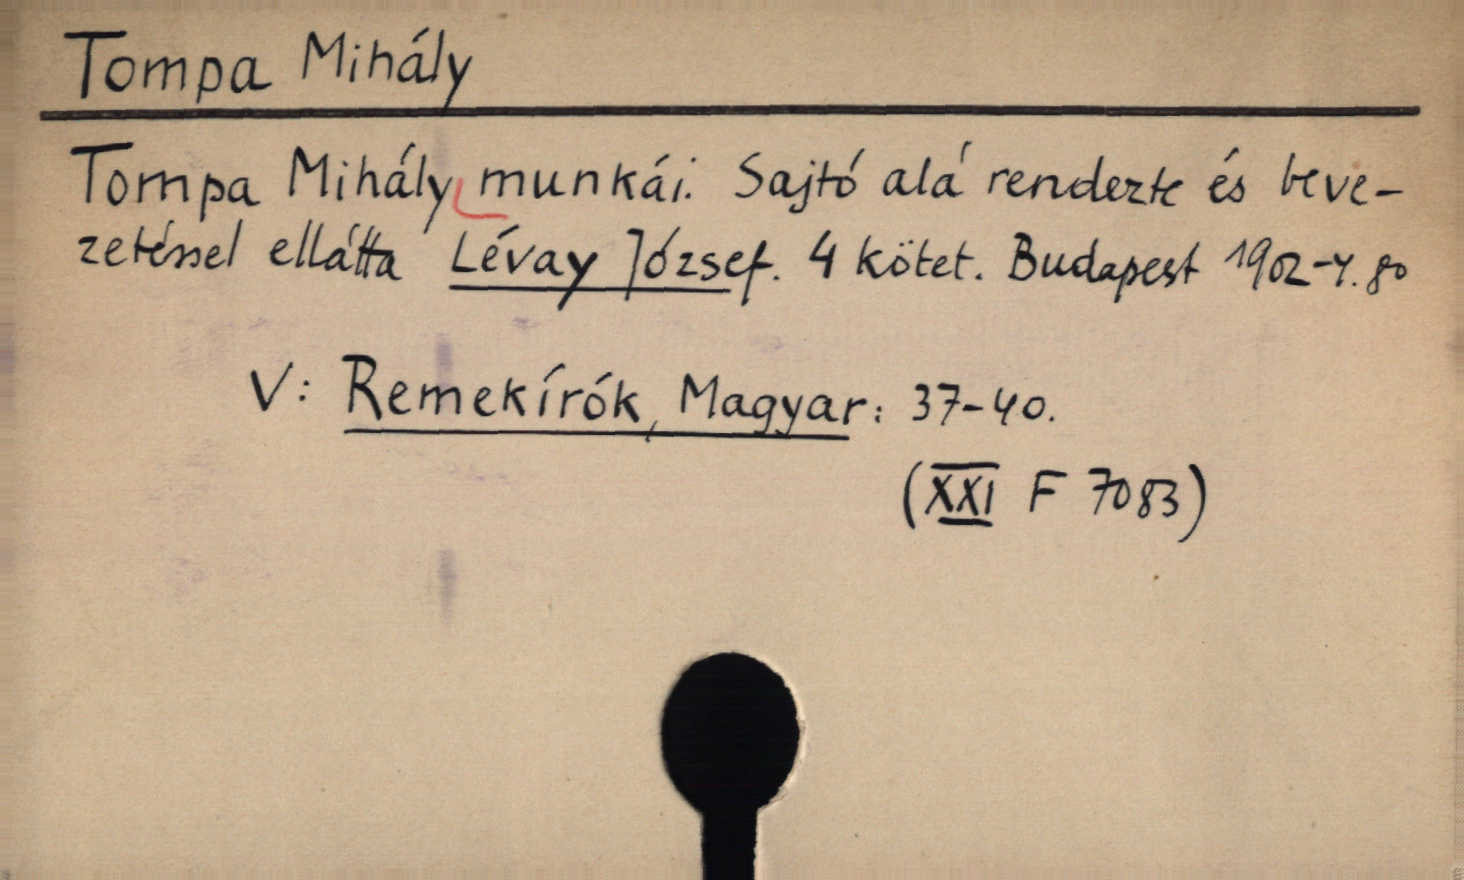 Tompa Mihály
Tompa Mihály munkái. Sajtó alá rendezte és beve-
zetéssel ellátta Lévay József. 4 kötet. Budapest 1902-4. 8o
V: Remekírók, Magyar: 37-40.
(XXI F 7083)